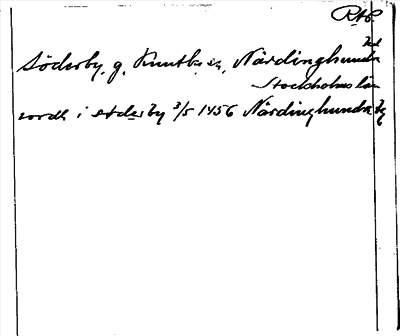 RAP
Söderby, g. Knutby sn, Närdinghundra
hd
Stockholms län
i söderby 3/5 1456 Närdinghundra